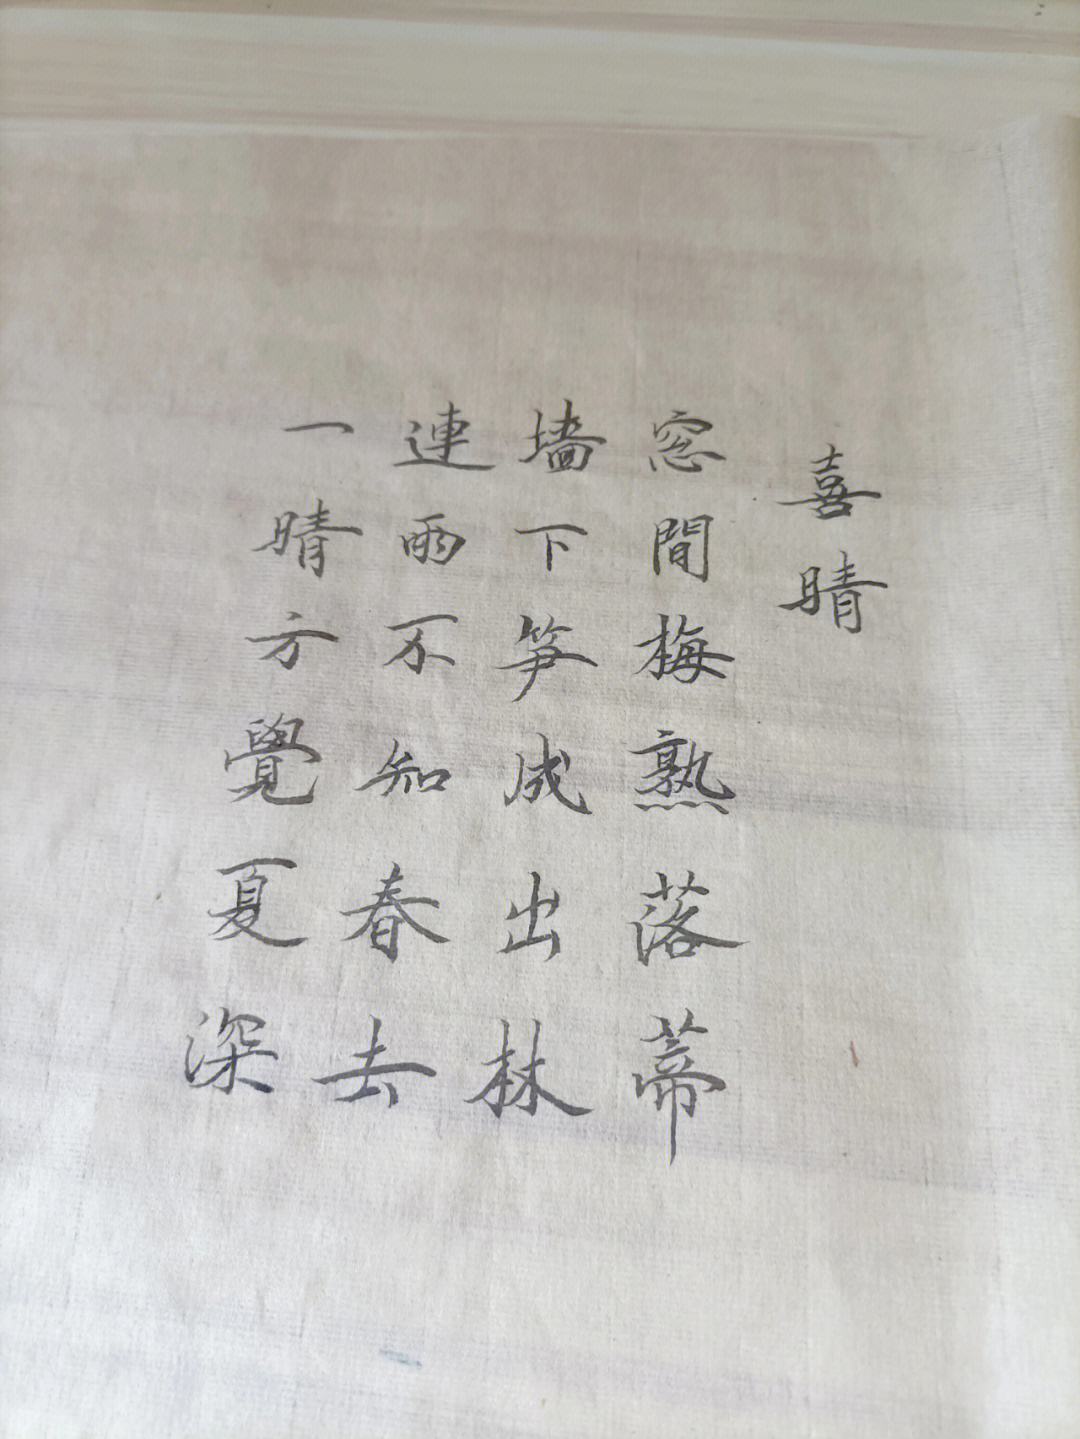 喜晴
窓間梅熟落蒂
墻下笋成出林
連雨不知春去
一晴方覺夏深